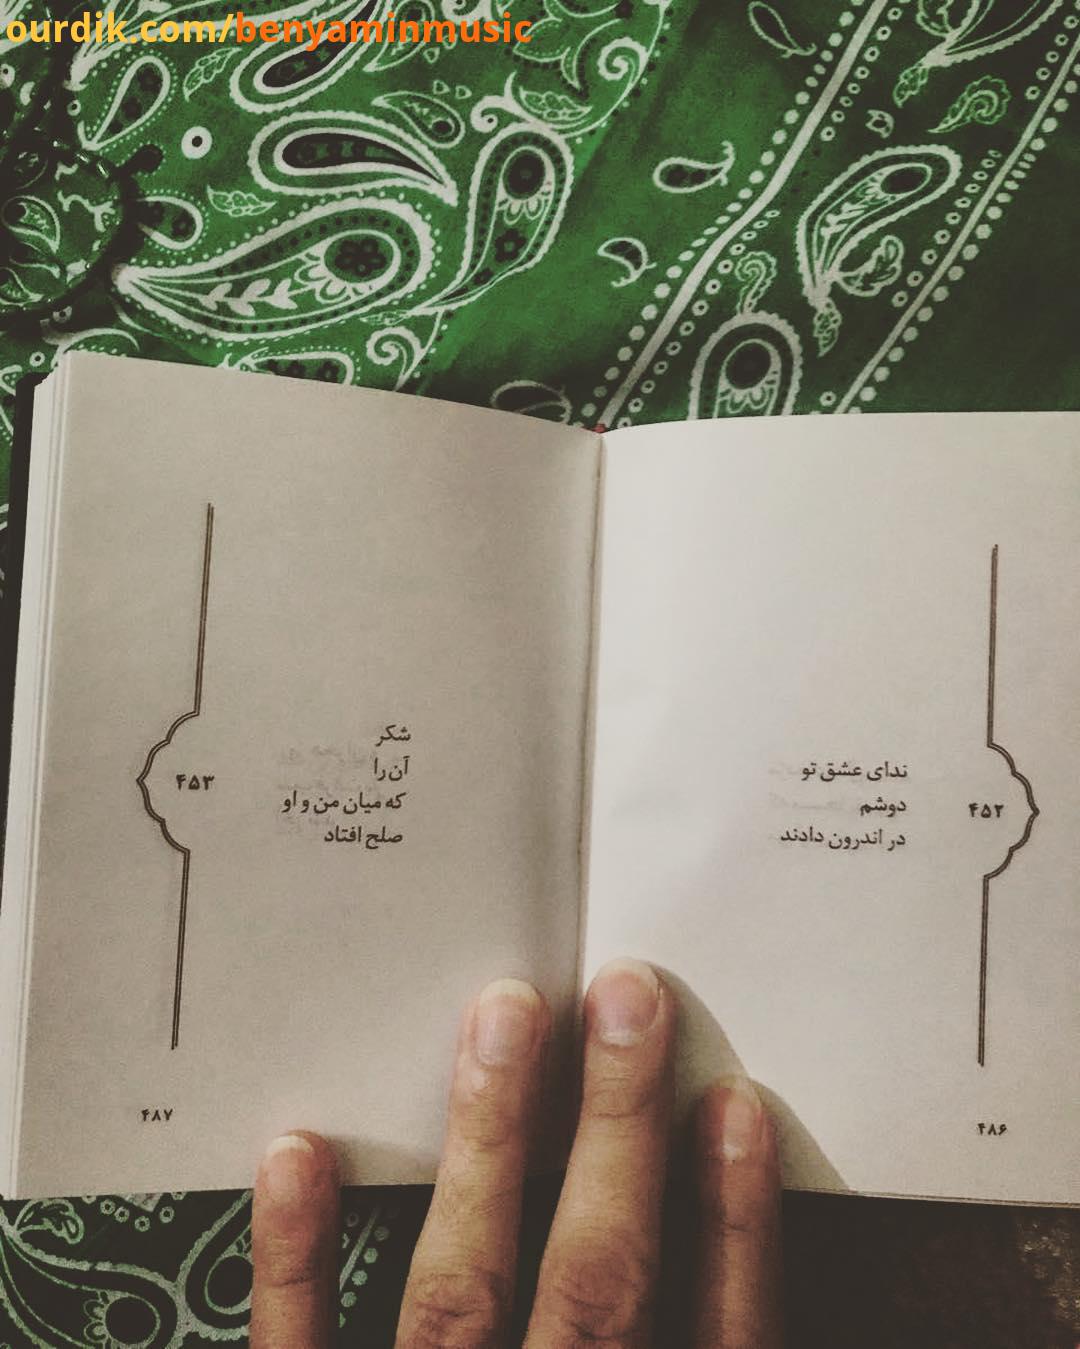 ourdik.com/benyaminmusic
ندای عشق تو
دوشم
در اندرون دادند
۴۵۲
۴۸۶
شکر
آن را
که میان من و او
صلح افتاد
۴۵۳
۴۸۷